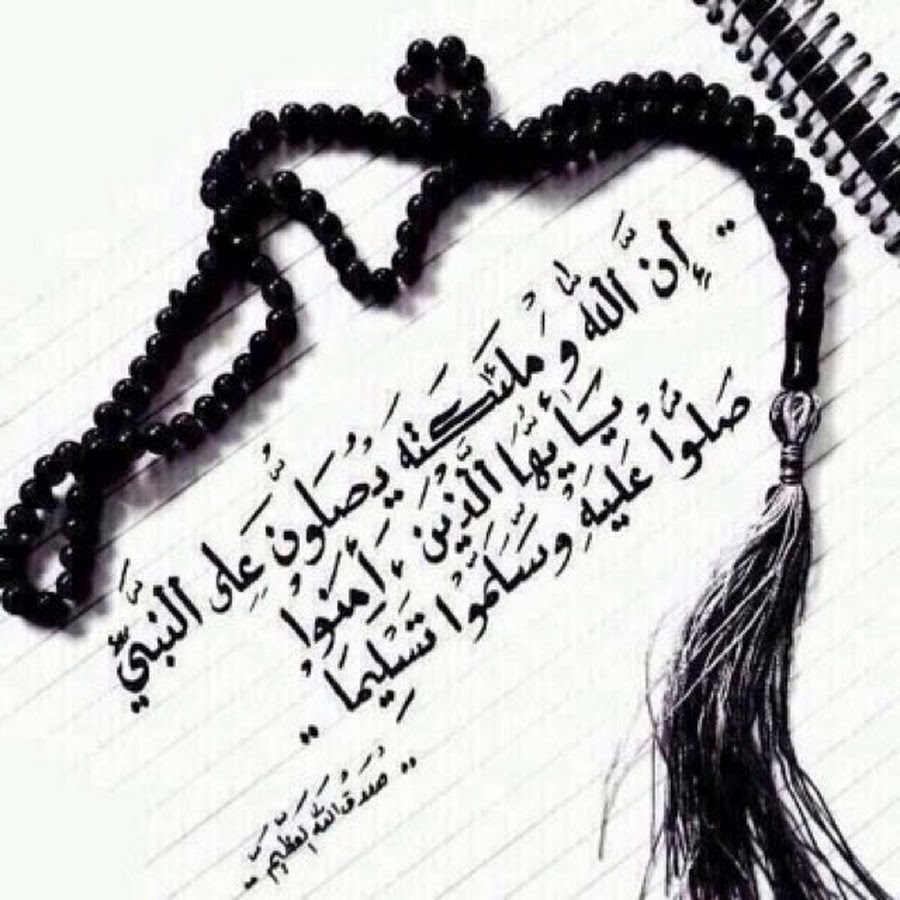 إِنَّ اللَّهَ وَمَلَٰئِكَتَهُ يُصَلُّونَ عَلَى النَّبِيِّ
يَا أَيُّهَا الَّذِينَ ءَامَنُوا
صَلُّوا عَلَيْهِ وَسَلِّمُوا تَسْلِيمًا
صَدَقَ اللَّهُ الْعَظِيمُ